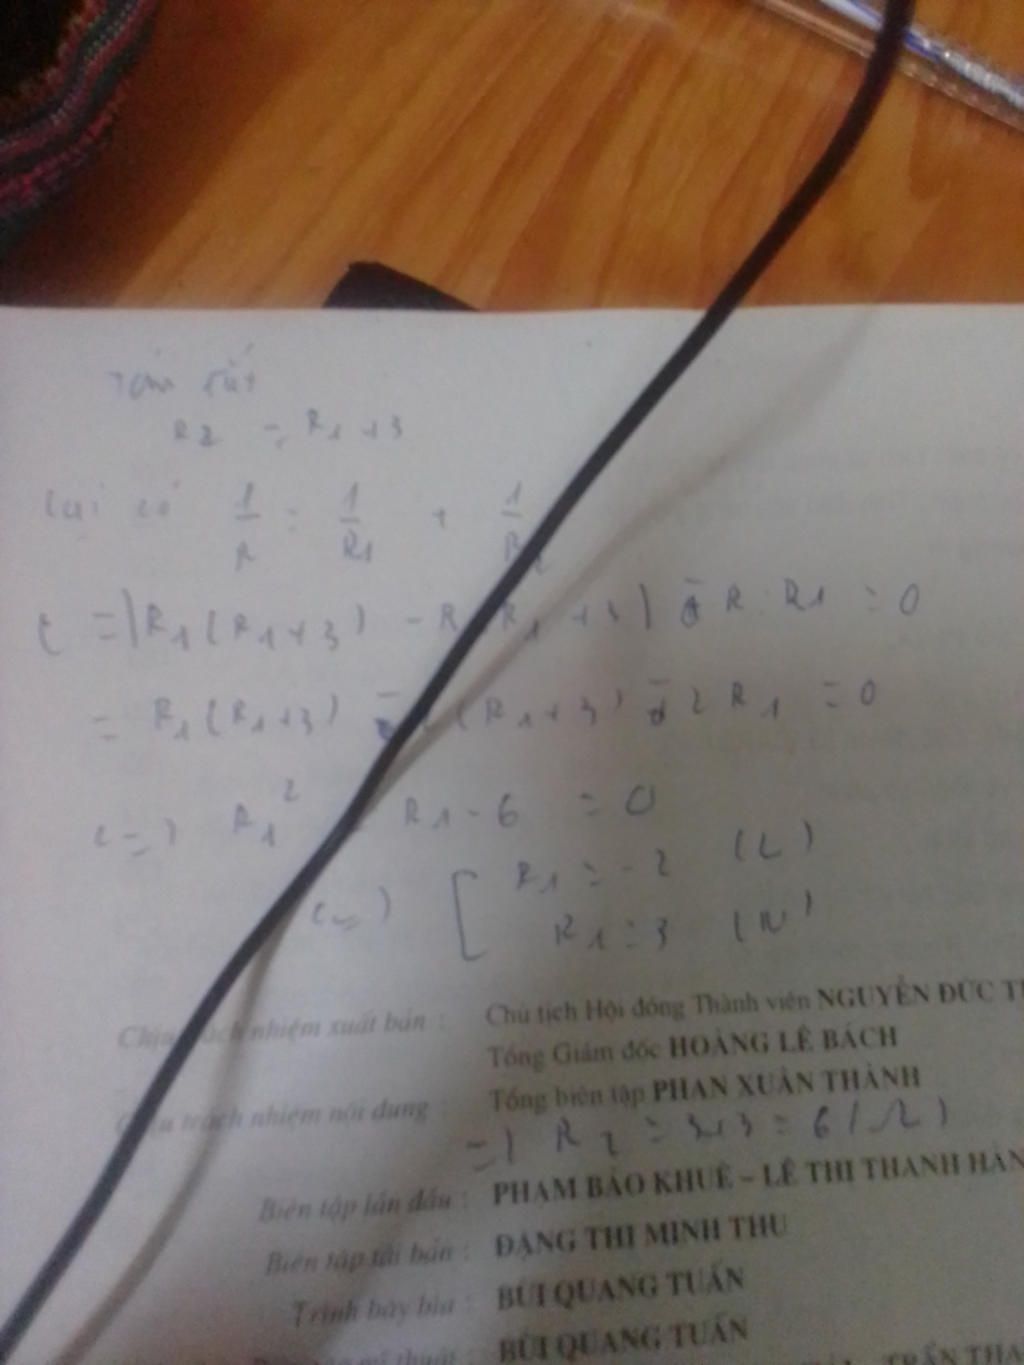 R2 = R1 + 3
Lại có 1/R = 1/R1 + 1/R2
R1(R1+3) - R R1 +3) - R. R1 = 0
= R1(R1+3) - (R1+3) - 2R1 = 0
R1² R1 - 6 = 0
R1 = -2 (L)
R1 = 3 (N)
nhiệm xuất bản : Chủ tịch Hội đồng Thành viên NGUYỄN ĐỨC
Tổng Giám đốc HOÀNG LÊ BÁCH
trách nhiệm nội dung : Tổng biên tập PHAN XUÂN THÀNH
=) R2 = 3+3 = 6 (Ω)
Biên tập lần đầu : PHẠM BẢO KHUÊ – LÊ THỊ THANH
Biên tập tái bản : ĐẶNG THỊ MINH THU
Trình bày bìa : BÙI QUANG TUẤN
thuật : BÙI QUANG TUẤN
TRẦN